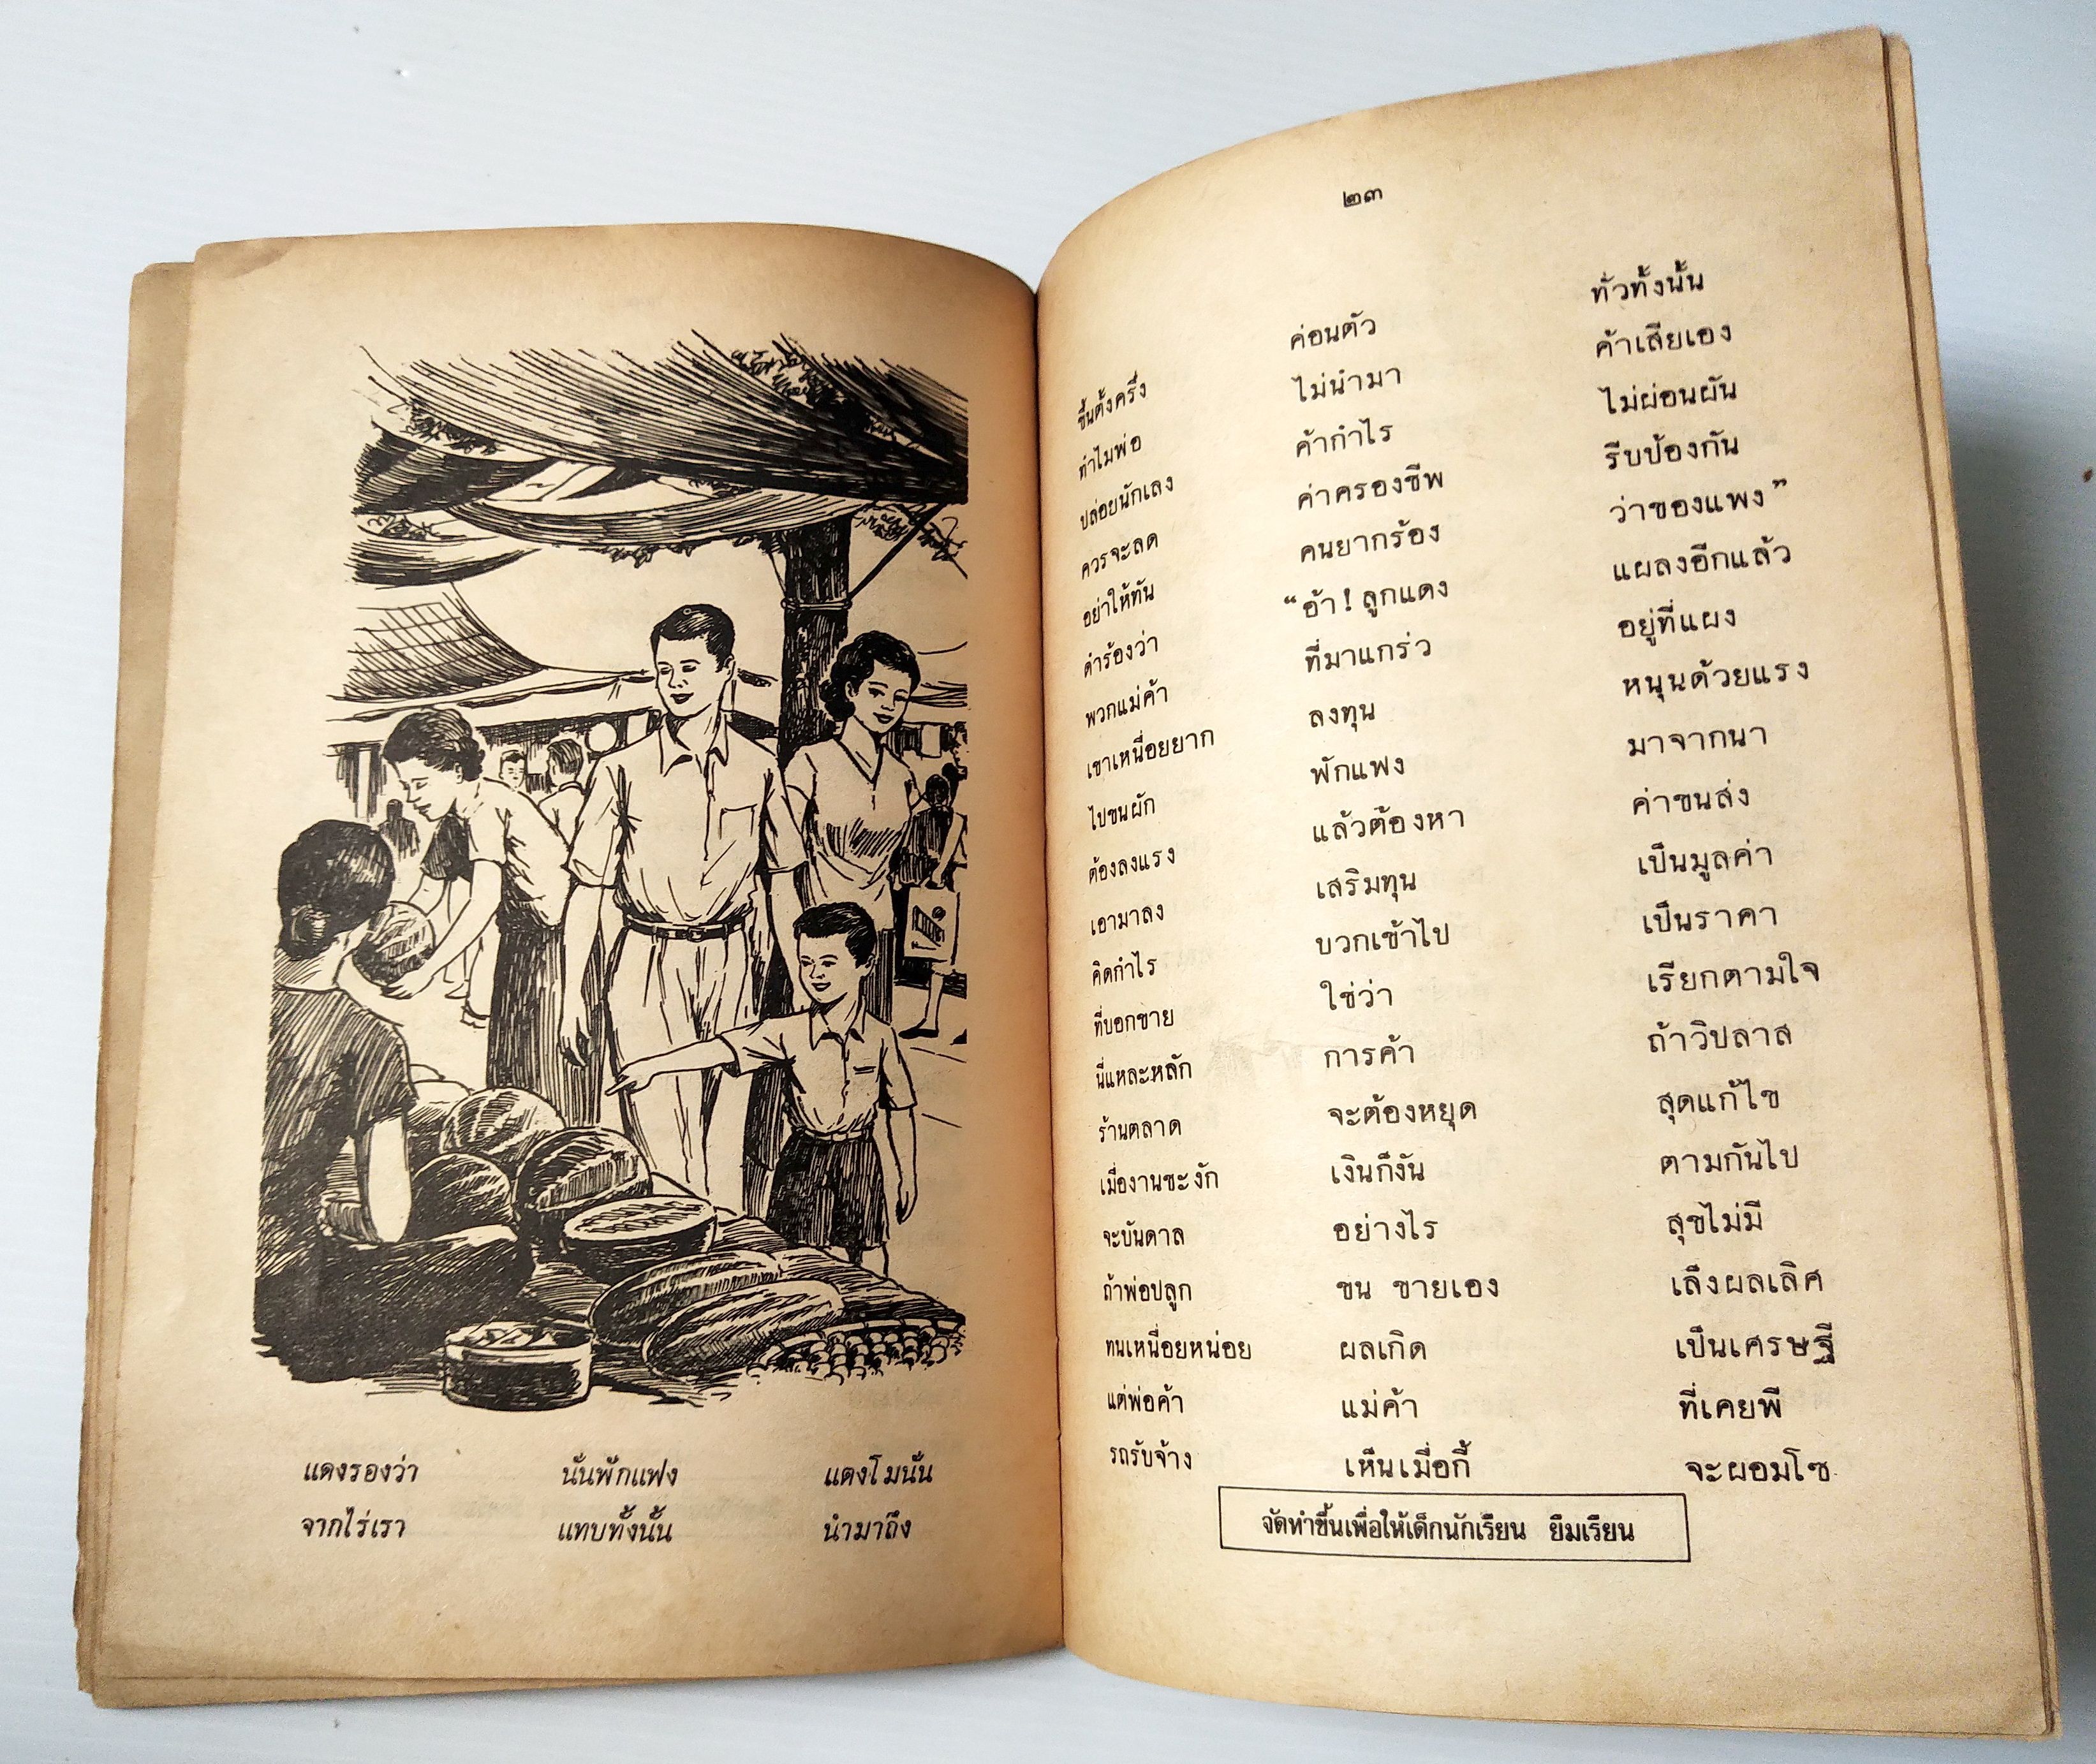 แดงร้องว่า นั่นฟักแฟง แตงโมนั่น
จากไร่เรา แทบทั้งนั้น นำมาถึง
๒๓
ขึ้นตั้งครึ่ง ค่อนตัว ทั่วทั้งนั้น
ทำไมพ่อ ไม่นำมา ค้าเสียเอง
ปล่อยนักเลง ค้ากำไร ไม่ผ่อนผัน
ควรจะลด ค่าครองชีพ รีบป้องกัน
อย่าให้ทัน คนยากร้อง ว่าของแพง”
คำร้องว่า “อ้า! ลูกแดง แผลงอีกแล้ว
พวกแม่ค้า ที่มาแกร่ว อยู่ที่แผง
เขาเหนื่อยยาก ลงทุน หนุนด้วยแรง
ไปขนผัก ฟักแฟง มาจากนา
ต้องลงแรง แล้วต้องหา ค่าขนส่ง
เอามาลง เสริมทุน เป็นมูลค่า
คิดกำไร บวกเข้าไป เป็นราคา
ที่บอกขาย ใช่ว่า เรียกตามใจ
นี่แหละหลัก การค้า ถ้าวิปลาส
ร้านตลาด จะต้องหยุด สุดแก้ไข
เมื่องานชะงัก เงินก็งัน ตามกันไป
จะบันดาล อย่างไร สุขไม่มี
ถ้าพ่อปลูก ขน ขายเอง เล็งผลเลิศ
ทนเหนื่อยหน่อย ผลเกิด เป็นเศรษฐี
แต่พ่อค้า แม่ค้า ที่เคยพี
รถรับจ้าง เห็นเมื่อกี้ จะผอมโซ
จัดทำขึ้นเพื่อให้เด็กนักเรียน ยืมเรียน